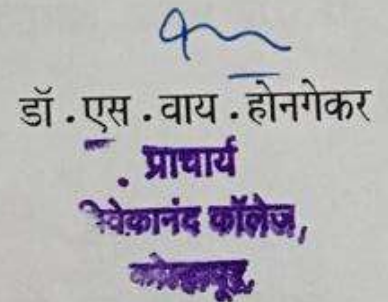 डॉ.एस.वाय.होनगेकर
प्राचार्य
विवेकानंद कॉलेज,
कोल्हापूर.